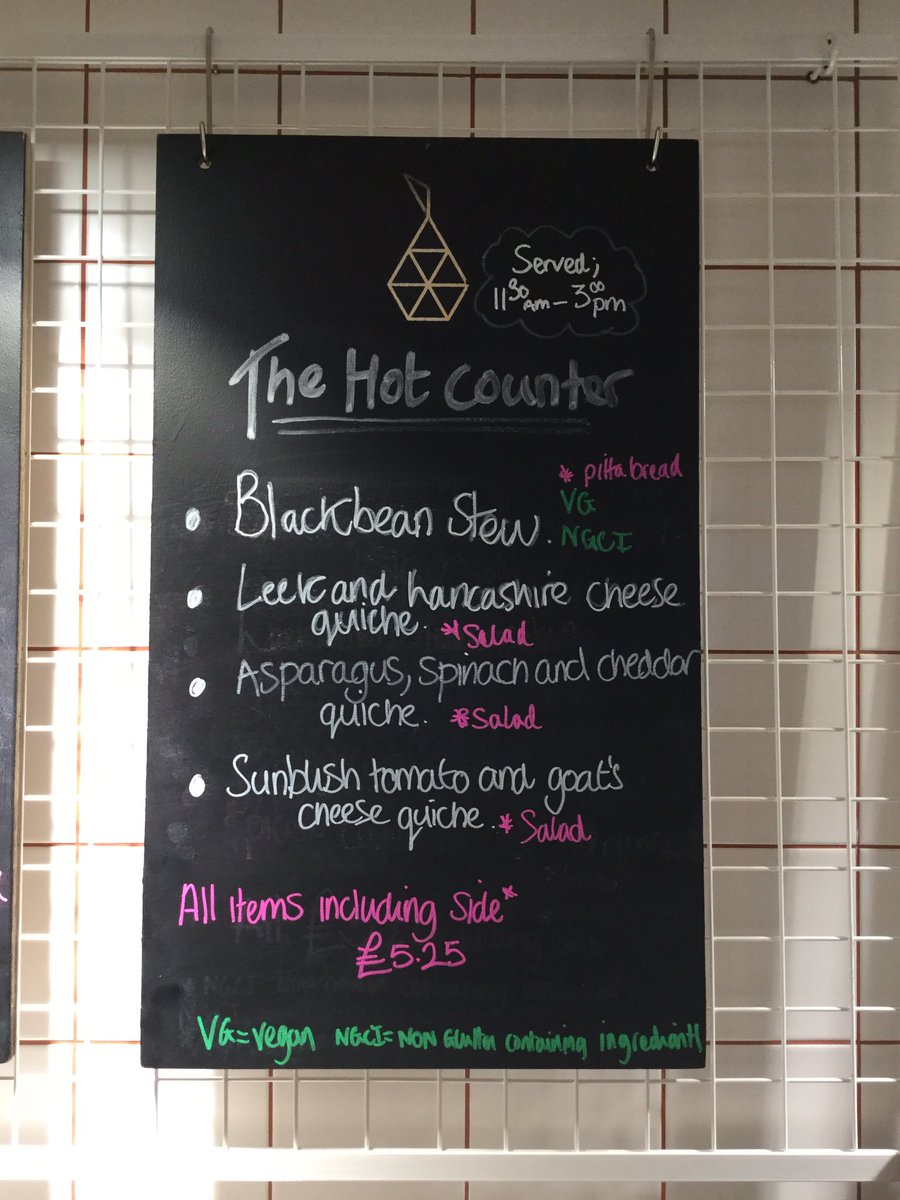 Served;
11 30 AM - 3 00 pm
The Hot Counter
* pitta bread
Blackbean Stew.
VG
NGCI
Leek and Lancashire cheese
quiche. * Salad
Asparagus, Spinach and cheddar
quiche. * Salad
Sunblush tomato and goat's
cheese quiche. * Salad
All items including Side*
£5.25
VG = Vegan NGCI = NON Glutten containing ingredients